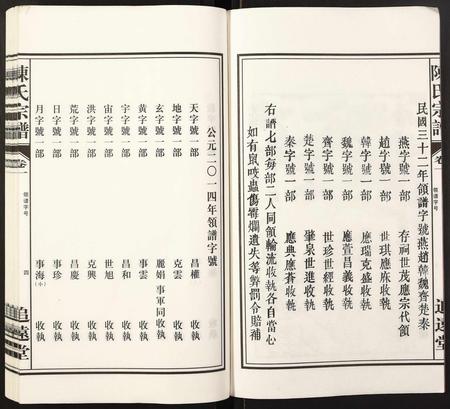 陳氏宗譜
卷一
領譜字號
追遠堂
民國三十二年領譜字號燕趙韓魏齊楚秦
燕字號一部 存嗣世茂應宗代領
趙字號一部 世琪應庥收執
韓字號一部 應瑞克盛收執
魏字號一部 應萱昌義收執
齊字號一部 世珍世經收執
楚字號一部 肇泉世進收執
秦字號一部 應典應蒼收執
右譜七部每部二人同領輪流收執各自當心
如有鼠咬蟲傷霉爛遺失等弊罰令賠補
公元二〇一四年領譜字號
天字號一部 昌權 收執
地字號一部 克雲 收執
玄字號一部 麗娟 事軍同收執
黃字號一部 事雲 收執
宇字號一部 昌和 收執
宙字號一部 世旭 收執
洪字號一部 克興 收執
荒字號一部 昌慶 收執
日字號一部 事珍 收執
月字號一部 事海(小) 收執
陳氏宗譜
卷一
領譜字號
四
追遠堂